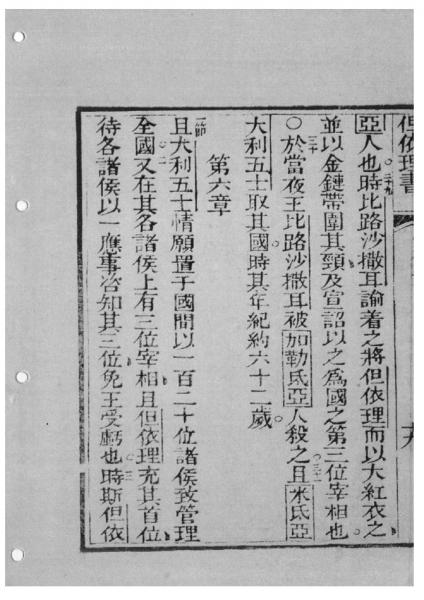 但依理書
亞人也時比路沙撒耳諭着之將但依理而以大紅衣之
並以金鏈帶圍其頸及宣詔以之爲國之第三位宰相也
三十
○於當夜王比路沙撒耳被加勒氐亞人殺之且米氐亞
三十一
大利五士取其國時其年紀約六十二歲
第六章
一節
且大利五士情願置于國間以一百二十位諸侯致管理
全國又在其各諸侯上有三位宰相且但依理充其首位
二
待各諸侯以一應事咨知其三位免王受虧也時斯但依
三